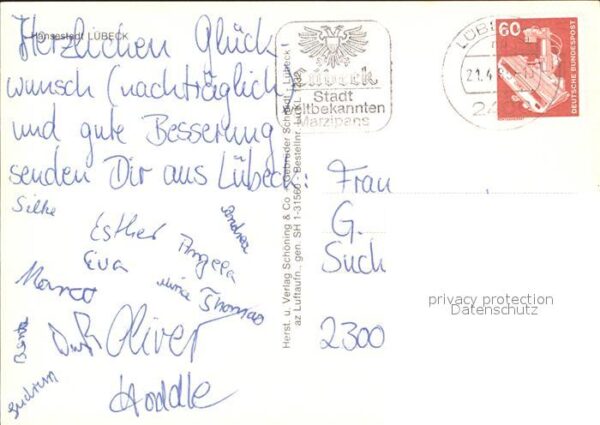 Hansestadt LÜBECK
Herzlichen Glück
wunsch (nachträglich)
und gute Besserung
senden Dir aus Lübeck:
Silke
Esther
Andrea
Angela
Eva
Marco
Thomas
Oliver
Gudrun
Lübeck
Stadt
weltbekannten
Marzipans
LÜBECK
21.4
24
60
DEUTSCHE BUNDESPOST
Herst. u. Verlag Schöning & Co + Gebrüder Schmidt, Lübeck
az Luftaufn., gen. SH 1-31560 - Bestellnr.
Frau
G.
Such
2300
privacy protection
Datenschutz